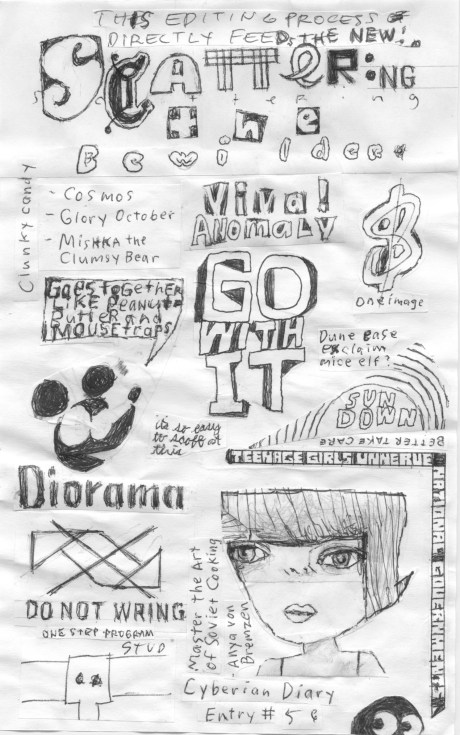 THIS EDITING PROCESS
DIRECTLY FEEDS THE NEW!
SCATTERING
scattering
the
Bewilder
Clunky candy
- Cosmos
- Glory October
- Mishka the
Clumsy Bear
Viva!
ANOMALY
$
One image
GOES TOGETHER
LIKE PEANUT
BUTTER AND
MOUSETRAPS
GO
WITH
IT
Dune ease
Exclaim
mice elf?
SUN
DOWN
BETTER TAKE CARE
its so easy
to scoff at
this
TEENAGE GIRLS UNNERVE
NATIONAL GOVERNMENT
Diorama
DO NOT WRING
ONE STEP PROGRAM
STUD
Master the Art
of Soviet Cooking
- Anya von
Bremzen
Cyberian Diary
Entry # 5